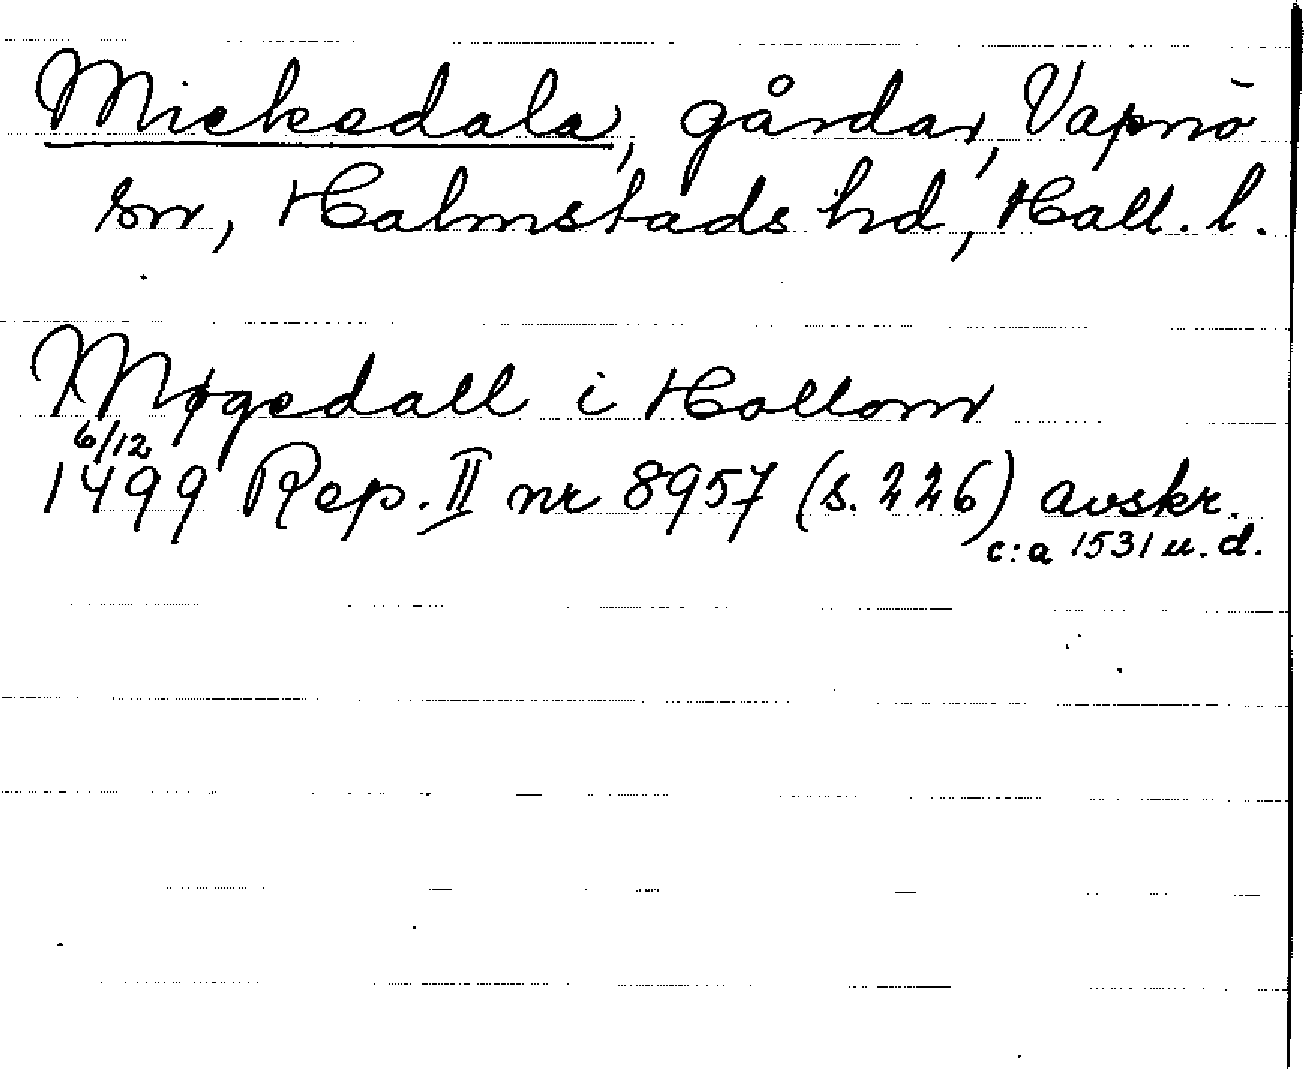 Mickedala, gårdar, Vapnö
sn, Halmstads hd, Hall. l.
Møgedall i Hallom
6/12
1499 Rep. II nr 8957 (s. 226) avskr.
c:a 1531 u. d.